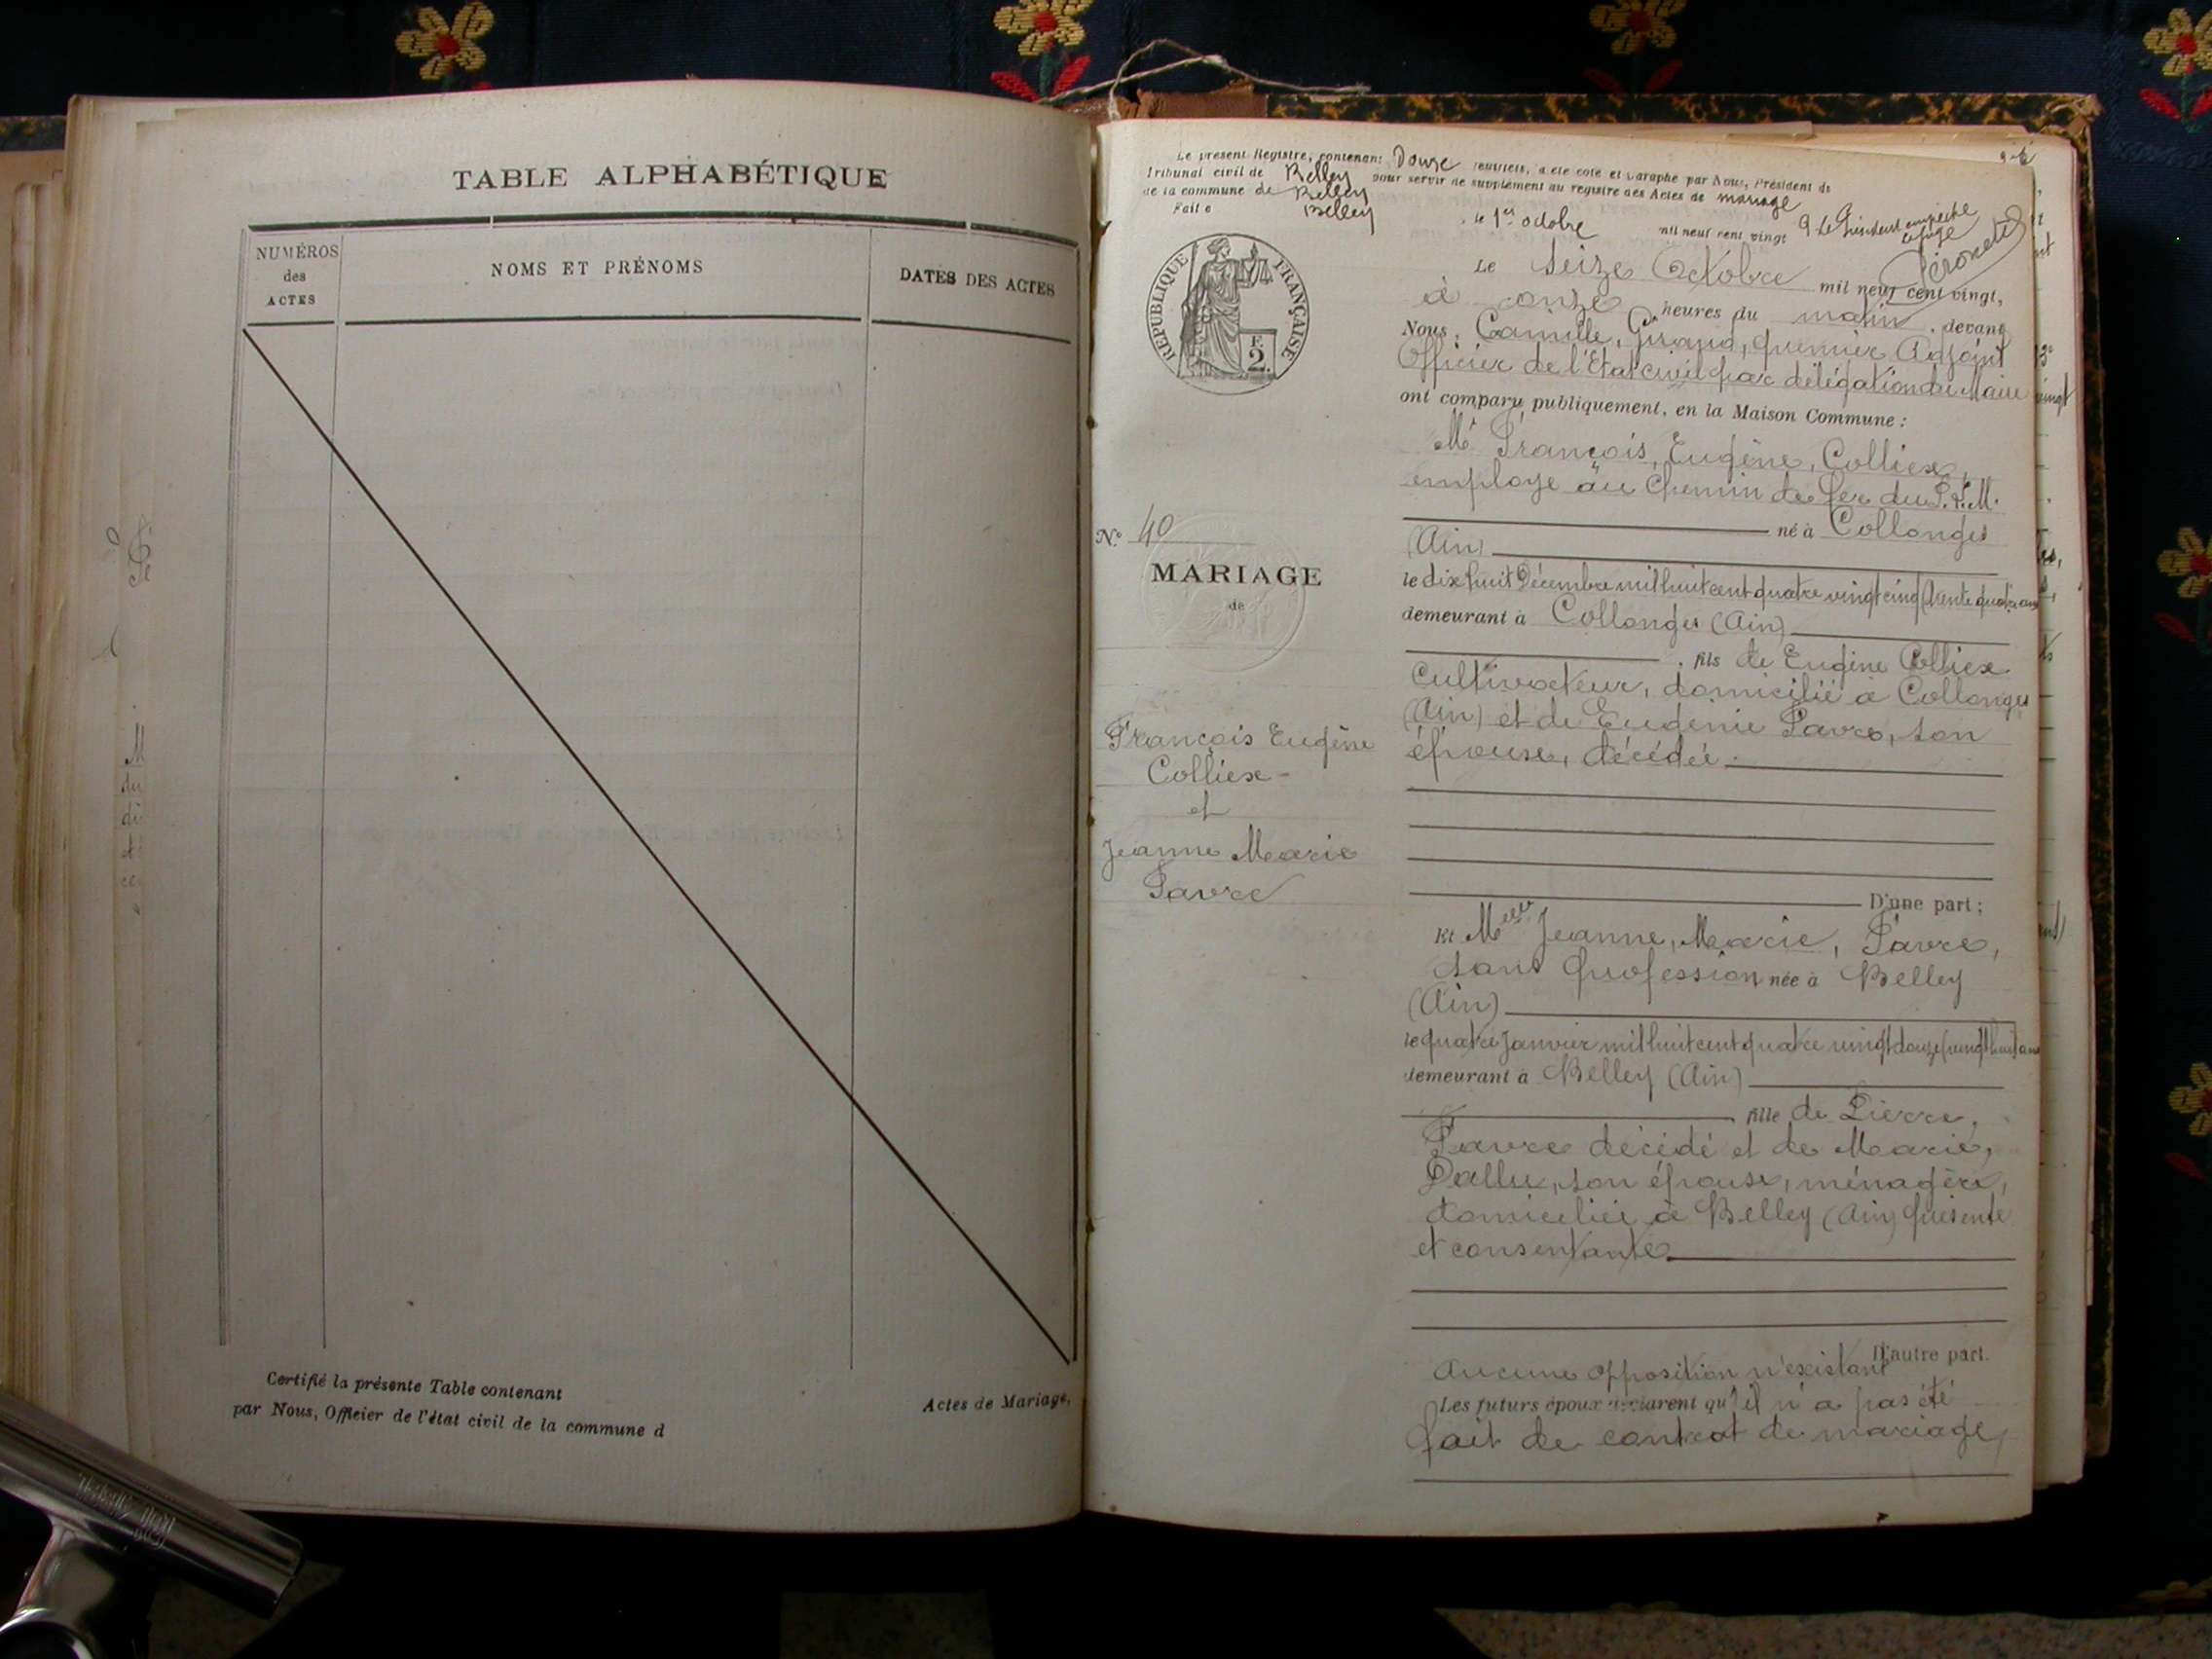 TABLE ALPHABÉTIQUE
NUMÉROS
des
ACTES
NOMS ET PRÉNOMS
DATES DES ACTES
Certifié la présente Table contenant
Actes de Mariage,
par Nous, Officier de l'état civil de la commune d
Le présent Registre, contenant Douze feuillets, a été coté et paraphé par Nous, Président du
Tribunal civil de Belley pour servir de supplément au registre des Actes de mariage
de la commune de Belley
Fait à Belley, le 1er octobre mil neuf cent vingt
Le Président empêché
RÉPUBLIQUE FRANÇAISE
F.
2.
Le Seize Octobre mil neuf cent vingt,
à onze heures du matin, devant
Nous, Camille, premier Adjoint
Officier de l'Etat civil par délégation du Maire
ont comparu publiquement, en la Maison Commune :
Mr François, Eugène, Colliex,
employé au Chemin de fer du P.L.M.
né à Collonges
(Ain)
le dix huit Décembre mil huit cent quatre vingt cinq (trente quatre ans
demeurant à Collonges (Ain)
, fils de Eugène Colliex
cultivateur, domicilié à Collonges
(Ain) et de Eugénie Favre, son
épouse, décédée.
D'une part ;
N.º 40
MARIAGE
de
François Eugène
Colliex -
et
Jeanne Marie
Favre
Et Melle Jeanne, Marie, Favre,
sans profession née à Belley
(Ain)
le quatre Janvier mil huit cent quatre vingt douze (vingt huit ans
demeurant à Belley (Ain)
fille de Pierre,
Favre décédé et de Marie,
Dallu, son épouse, ménagère,
domiciliée à Belley (Ain) présente
et consentante
D'autre part.
Aucune opposition n'existant
Les futurs époux déclarent qu'il n'a pas été
fait de contrat de mariage,